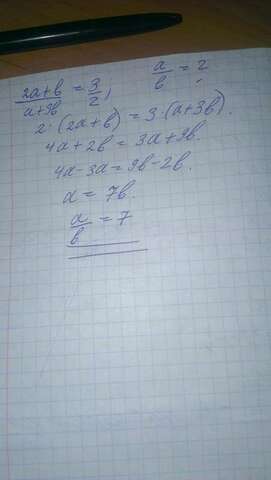 (2a+b)/(a+3b) = 3/2, a/b = ?
2·(2a+b) = 3·(a+3b).
4a+2b = 3a+9b.
4a-3a = 9b-2b.
a = 7b.
a/b = 7